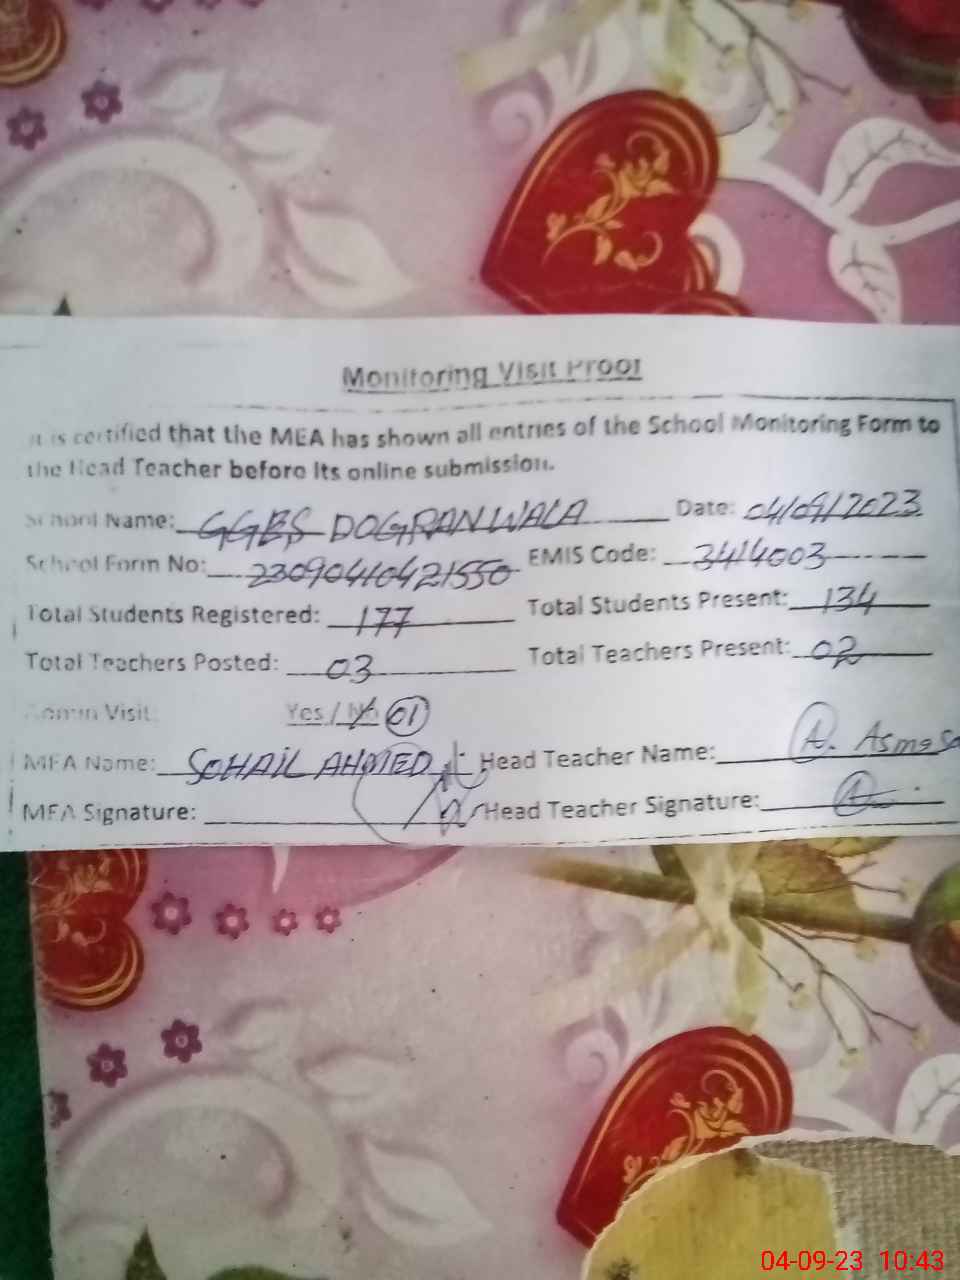 Monitoring Visit Proof
It is certified that the MEA has shown all entries of the School Monitoring Form to
the Head Teacher before its online submission.
School Name: GGES DOGRANWALA Date: 04/09/2023
School Form No: 23090410421550 EMIS Code: 3414003
Total Students Registered: 177 Total Students Present: 134
Total Teachers Posted: 03 Total Teachers Present: 02
Admin Visit: Yes / No 01
MEA Name: SOHAIL AHMED Head Teacher Name: A. Asma
MEA Signature: Head Teacher Signature:
04-09-23 10:43